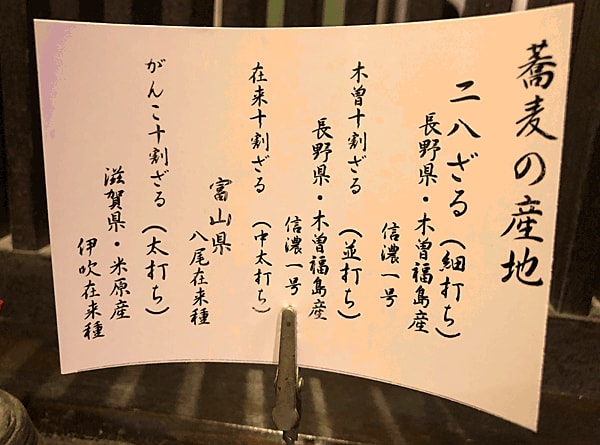 蕎麦の産地
二八ざる（細打ち）
長野県・木曽福島産
信濃一号
木曽十割ざる（並打ち）
長野県・木曽福島産
信濃一号
在来十割ざる（中太打ち）
富山県
八尾在来種
がんこ十割ざる（太打ち）
滋賀県・米原産
伊吹在来種